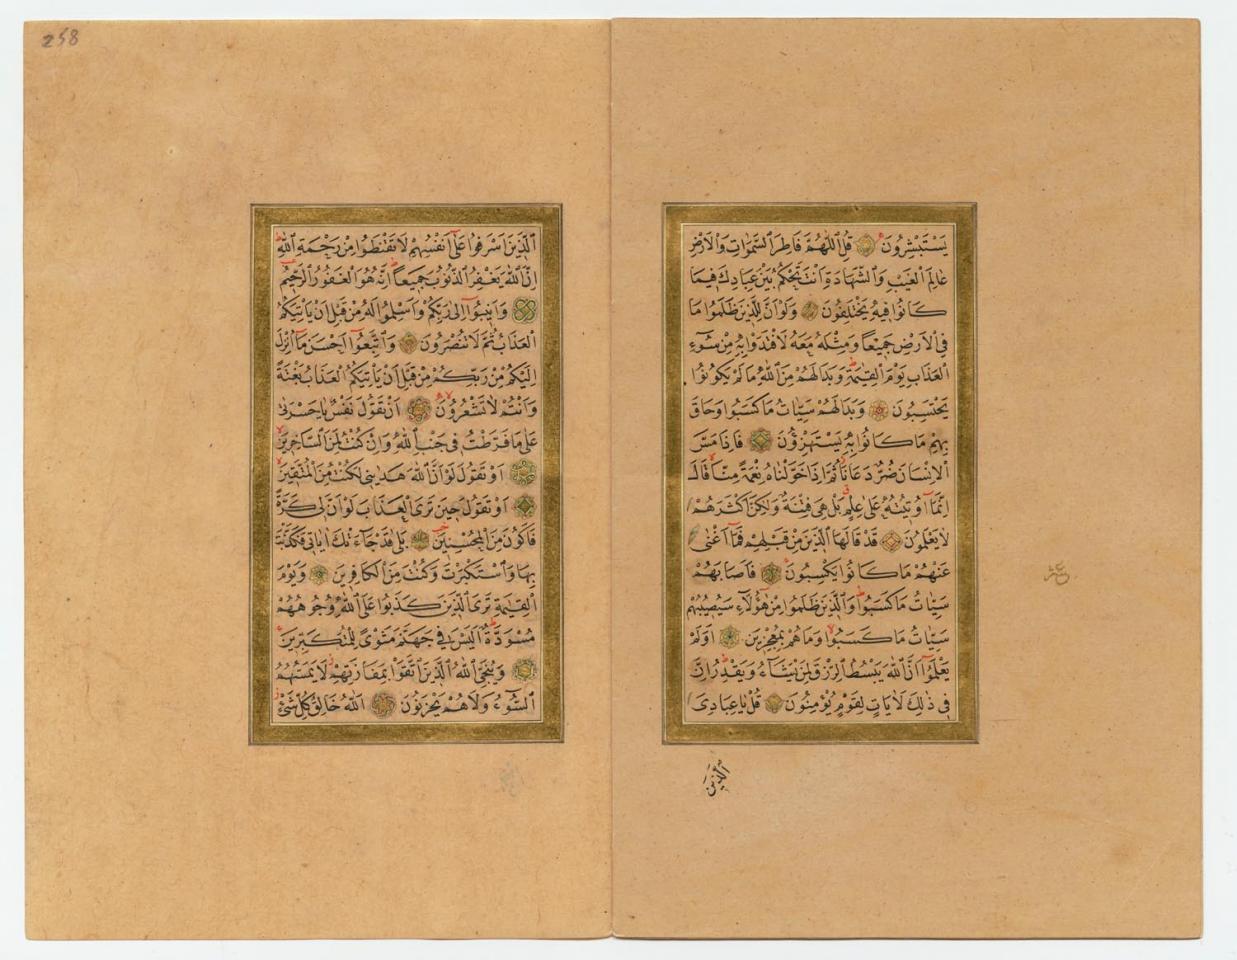 يَسْتَبْشِرُونَ قُلِ اللّٰهُمَّ فَاطِرَ السَّمٰوَاتِ وَالْاَرْضِ
عَالِمَ الْغَيْبِ وَالشَّهَادَةِ اَنْتَ تَحْكُمُ بَيْنَ عِبَادِكَ فِيمَا
كَانُوا فِيهِ يَخْتَلِفُونَ وَلَوْ اَنَّ لِلَّذِينَ ظَلَمُوا مَا
فِي الْاَرْضِ جَمِيعًا وَمِثْلَهُ مَعَهُ لَافْتَدَوْا بِهِ مِنْ سُوءِ
الْعَذَابِ يَوْمَ الْقِيٰمَةِ وَبَدَا لَهُمْ مِنَ اللّٰهِ مَا لَمْ يَكُونُوا
يَحْتَسِبُونَ وَبَدَا لَهُمْ سَيِّاٰتُ مَا كَسَبُوا وَحَاقَ
بِهِمْ مَا كَانُوا بِهِ يَسْتَهْزِؤُنَ فَاِذَا مَسَّ
الْاِنْسَانَ ضُرٌّ دَعَانَا ثُمَّ اِذَا خَوَّلْنَاهُ نِعْمَةً مِنَّا قَالَ
اِنَّمَا اُو۫تِيتُهُ عَلٰى عِلْمٍ بَلْ هِيَ فِتْنَةٌ وَلٰكِنَّ اَكْثَرَهُمْ
لَا يَعْلَمُونَ قَدْ قَالَهَا الَّذِينَ مِنْ قَبْلِهِمْ فَمَا اَغْنٰى
عَنْهُمْ مَا كَانُوا يَكْسِبُونَ فَاَصَابَهُمْ
سَيِّاٰتُ مَا كَسَبُوا وَالَّذِينَ ظَلَمُوا مِنْ هٰؤُلَاءِ سَيُصِيبُهُمْ
سَيِّاٰتُ مَا كَسَبُوا وَمَا هُمْ بِمُعْجِزِينَ اَوَلَمْ
يَعْلَمُوا اَنَّ اللّٰهَ يَبْسُطُ الرِّزْقَ لِمَنْ يَشَاءُ وَيَقْدِرُ اِنَّ
فِي ذٰلِكَ لَاٰيَاتٍ لِقَوْمٍ يُؤْمِنُونَ قُلْ يَا عِبَادِيَ
الَّذِينَ
258
الَّذِينَ اَسْرَفُوا عَلٰى اَنْفُسِهِمْ لَا تَقْنَطُوا مِنْ رَحْمَةِ اللّٰهِ
اِنَّ اللّٰهَ يَغْفِرُ الذُّنُوبَ جَمِيعًا اِنَّهُ هُوَ الْغَفُورُ الرَّحِيمُ
وَاَنِيبُوا اِلٰى رَبِّكُمْ وَاَسْلِمُوا لَهُ مِنْ قَبْلِ اَنْ يَاْتِيَكُمُ
الْعَذَابُ ثُمَّ لَا تُنْصَرُونَ وَاتَّبِعُوا اَحْسَنَ مَا اُنْزِلَ
اِلَيْكُمْ مِنْ رَبِّكُمْ مِنْ قَبْلِ اَنْ يَاْتِيَكُمُ الْعَذَابُ بَغْتَةً
وَاَنْتُمْ لَا تَشْعُرُونَ اَنْ تَقُولَ نَفْسٌ يَا حَسْرَتٰى
عَلٰى مَا فَرَّطْتُ فِي جَنْبِ اللّٰهِ وَاِنْ كُنْتُ لَمِنَ السَّاخِرِينَ
اَوْ تَقُولَ لَوْ اَنَّ اللّٰهَ هَدٰينِي لَكُنْتُ مِنَ الْمُتَّقِينَ
اَوْ تَقُولَ حِينَ تَرَى الْعَذَابَ لَوْ اَنَّ لِي كَرَّةً
فَاَكُونَ مِنَ الْمُحْسِنِينَ بَلٰى قَدْ جَاءَتْكَ اٰيَاتِي فَكَذَّبْتَ
بِهَا وَاسْتَكْبَرْتَ وَكُنْتَ مِنَ الْكَافِرِينَ وَيَوْمَ
الْقِيٰمَةِ تَرَى الَّذِينَ كَذَبُوا عَلَى اللّٰهِ وُجُوهُهُمْ
مُسْوَدَّةٌ اَلَيْسَ فِي جَهَنَّمَ مَثْوًى لِلْمُتَكَبِّرِينَ
وَيُنَجِّي اللّٰهُ الَّذِينَ اتَّقَوْا بِمَفَازَتِهِمْ لَا يَمَسُّهُمُ
السُّوءُ وَلَا هُمْ يَحْزَنُونَ اَللّٰهُ خَالِقُ كُلِّ شَيْءٍ